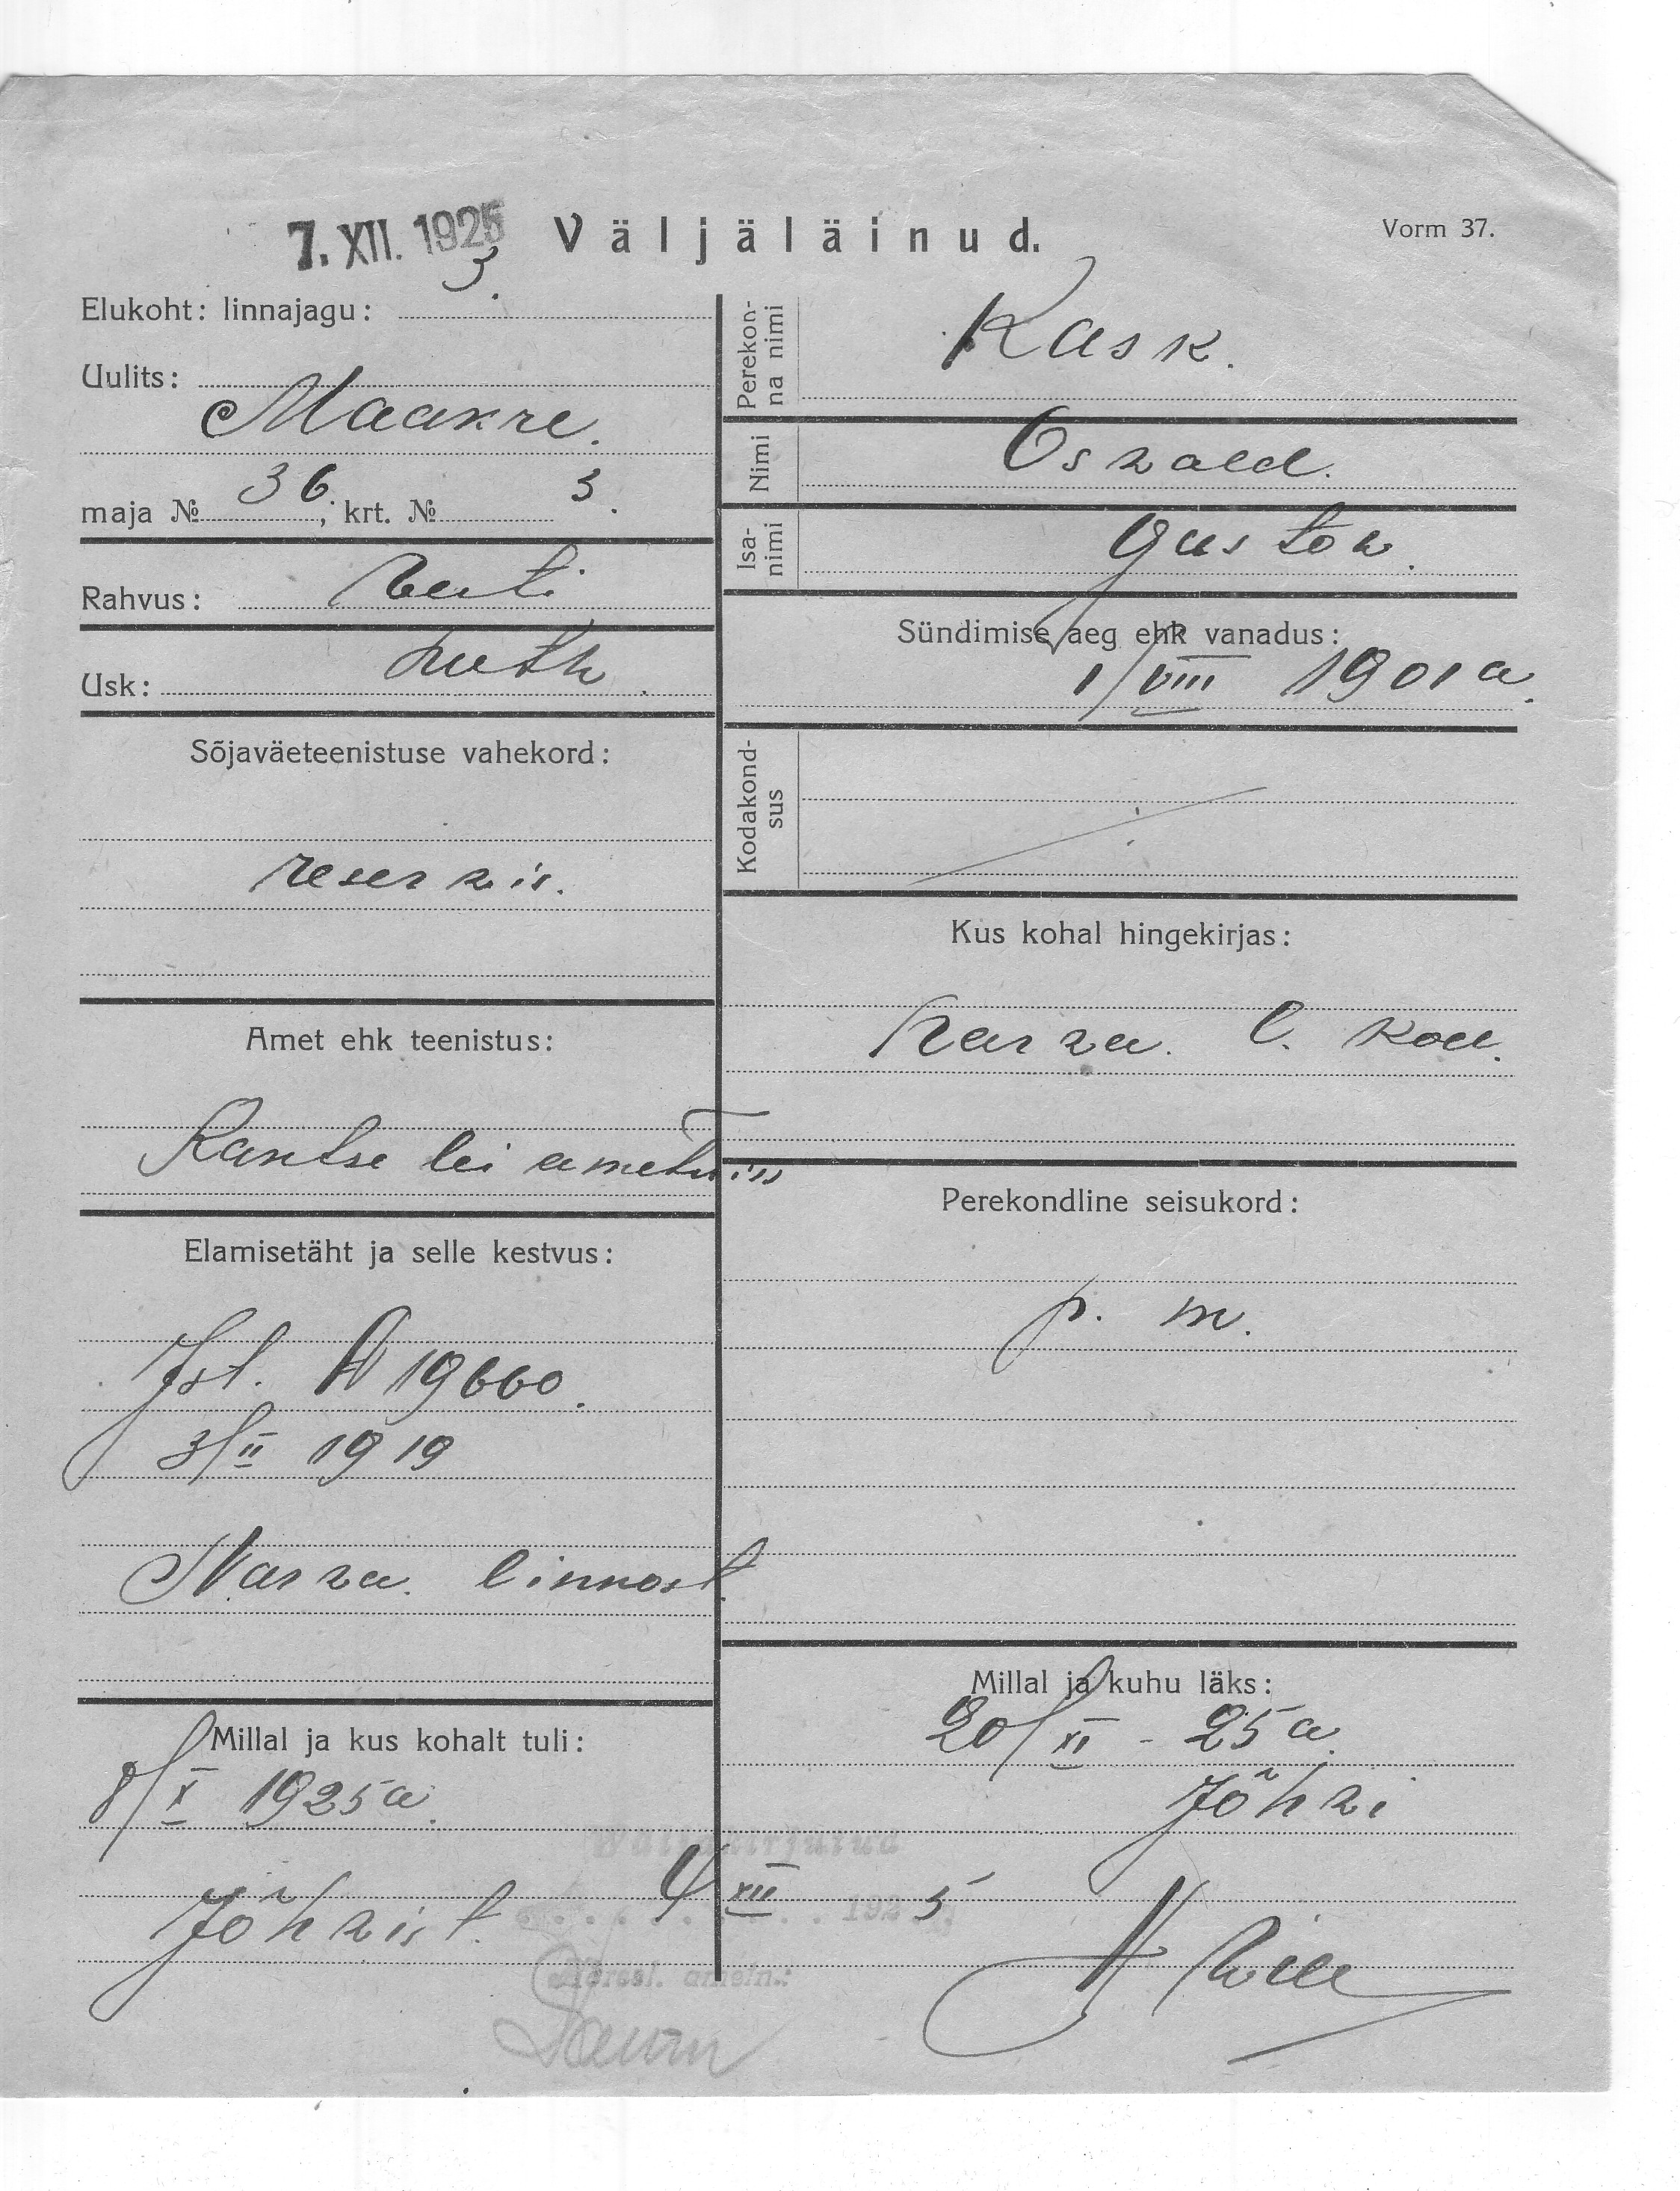 7. XII. 1925 Väljäläinud. Vorm 37.
Elukoht: linnajagu: 3.
Uulits:
Maakre.
maja № 36; krt. № 3.
Rahvus: Eesti
Usk: Luth.
Sõjaväeteenistuse vahekord:
reservis.
Amet ehk teenistus:
Kantselei ametnis
Elamisetäht ja selle kestvus:
Ist. A 19660.
3/II 1919
Narva. linnast.
Millal ja kus kohalt tuli:
8/X 1925 a.
Jõhvist.
Perekonna nimi
Kask.
Nimi
Osvald.
Isanimi
Gustav.
Sündimise aeg ehk vanadus:
1/VIII 1901 a.
Kodakondsus
Kus kohal hingekirjas:
Narva. l. kod.
Perekondline seisukord:
p. m.
Millal ja kuhu läks:
20/XI - 25 a.
Jõhvi
Väljakirjutud
4/XII 1925
Adressl. ametn.: